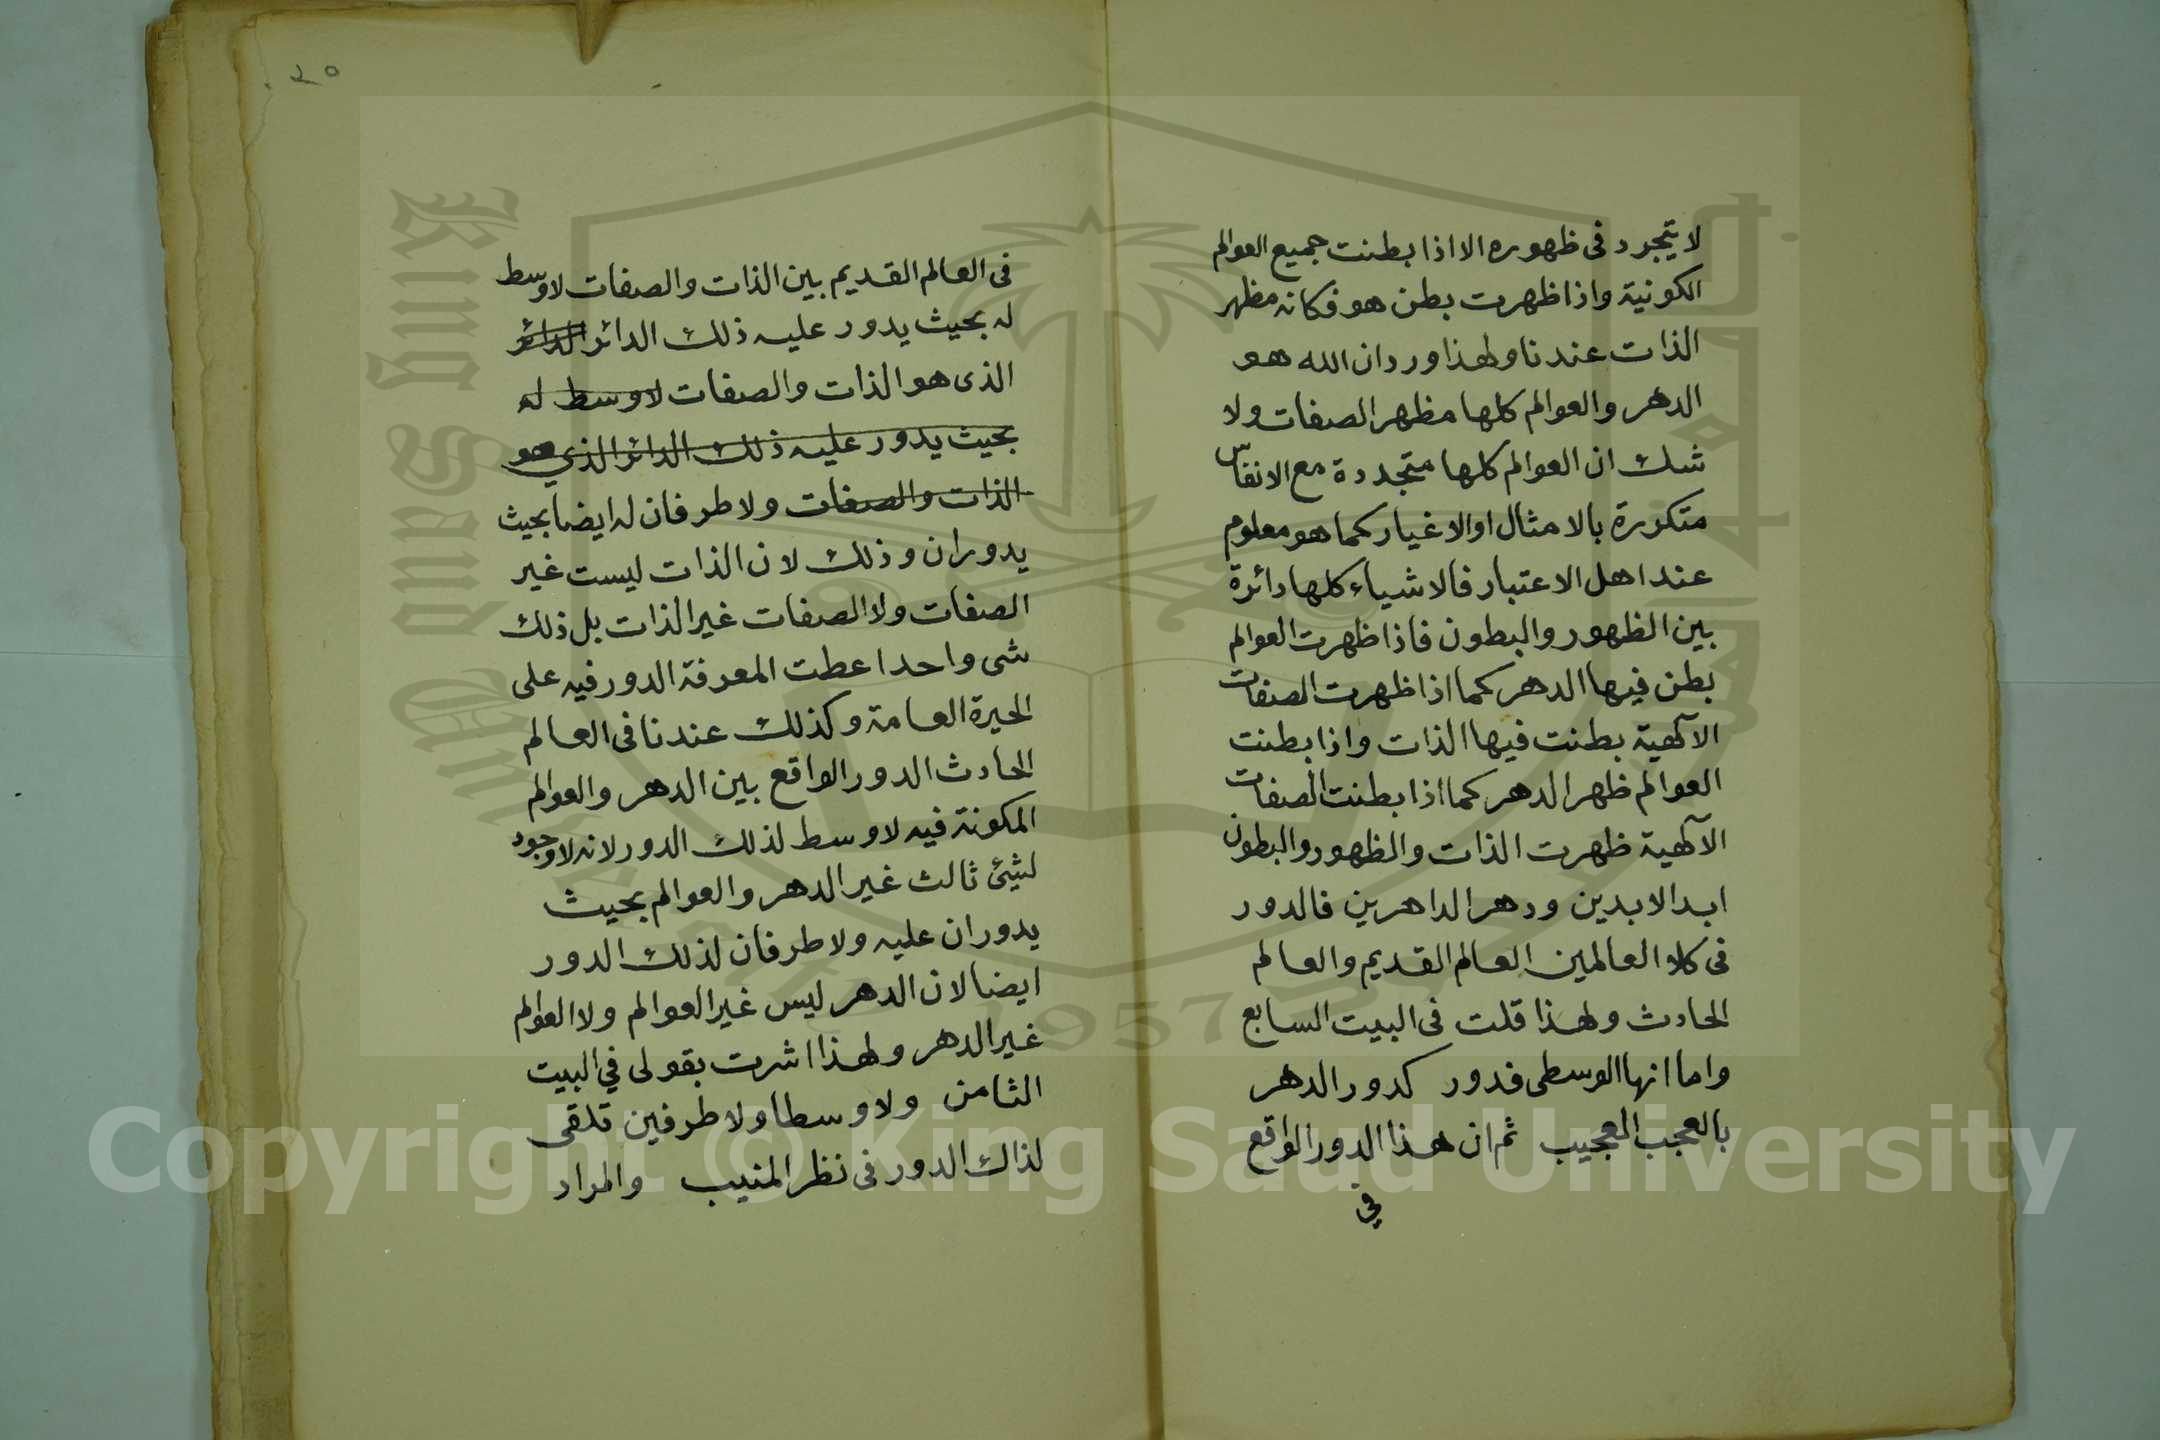 لا يتجرد فى ظهوره الا اذا بطنت جميع العوالم
الكونية واذا ظهرت بطن هو فكانه مظهر
الذات عندنا ولهذا ورد ان الله هو
الدهر والعوالم كلها مظهر الصفات ولا
شك ان العوالم كلها متجددة مع الانفاس
متكررة بالامثال او الاغيار كما هو معلوم
عند اهل الاعتبار فالاشياء كلها دائرة
بين الظهور والبطون فاذا ظهرت العوالم
بطن فيها الدهر كما اذا ظهرت الصفات
الآلهية بطنت فيها الذات واذا بطنت
العوالم ظهر الدهر كما اذا بطنت الصفات
الآلهية ظهرت الذات والظهور والبطون
ابد الابدين ودهر الداهرين فالدور
فى كلا العالمين العالم القديم والعالم
الحادث ولهذا قلت فى البيت السابع
واما انها الوسطى فدور كدور الدهر
بالعجب العجيب ثم ان هذا الدور الواقع
في
٢٠
فى العالم القديم بين الذات والصفات لاوسط
له بحيث يدور عليه ذلك الدائر الدائر
الذى هو الذات والصفات لاوسط له
بحيث يدور عليه ذلك الدائر الذي هو
الذات والصفات ولا طرفان له ايضا بحيث
يدوران وذلك لان الذات ليست غير
الصفات ولا الصفات غير الذات بل ذلك
شى واحد اعطت المعرفة الدور فيه على
الحيرة العامة وكذلك عندنا فى العالم
الحادث الدور الواقع بين الدهر والعوالم
المكونة فيه لاوسط لذلك الدور لانه لاوجود
لشيئ ثالث غير الدهر والعوالم بحيث
يدوران عليه ولا طرفان لذلك الدور
ايضا لان الدهر ليس غير العوالم ولا العوالم
غير الدهر ولهذا اشرت بقولى في البيت
الثامن ولا وسطا ولا طرفين تلقى
لذاك الدور فى نظر المنيب والمراد
Copyright © King Saud University
King Saud University
1957